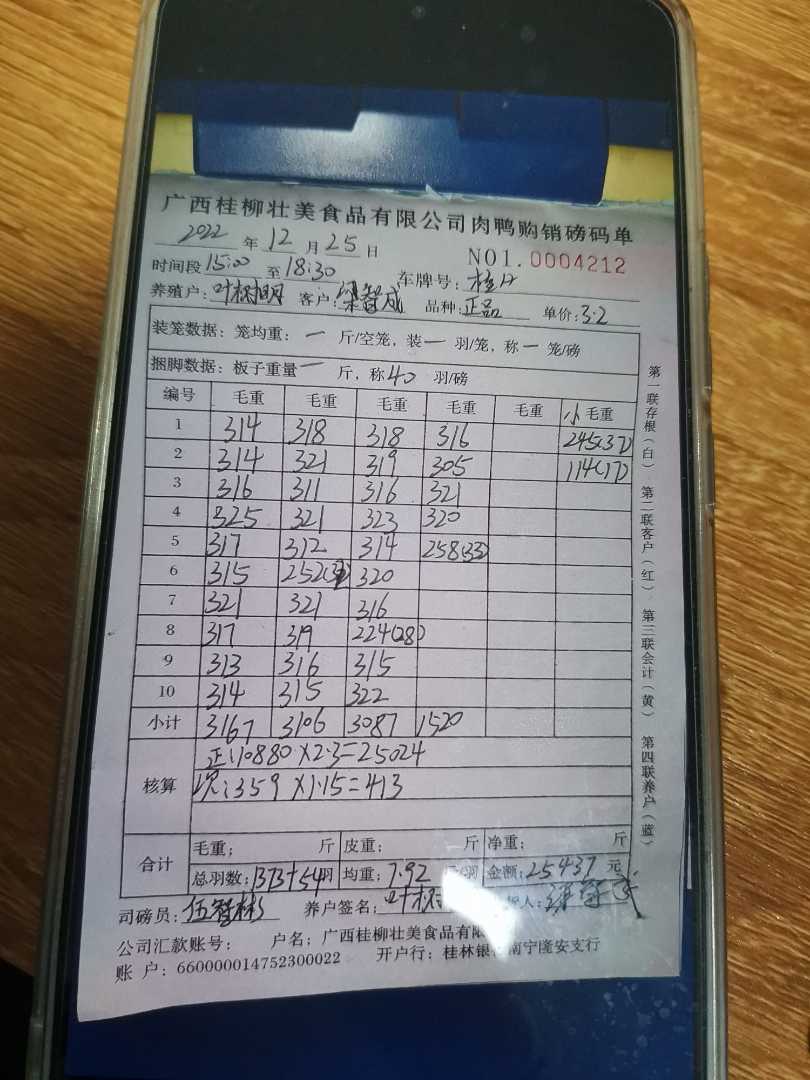 广西桂柳壮美食品有限公司肉鸭购销磅码单
2022 年 12 月 25 日 NO1.0004212
时间段 15:00 至 18:30 车牌号: 桂A
养殖户: 叶树明 客户: 梁智成 品种: 正品 单价: 3.2
装笼数据: 笼均重: 一 斤/空笼, 装 一 羽/笼, 称 一 笼/磅
捆脚数据: 板子重量 一 斤, 称 40 羽/磅
编号 毛重 毛重 毛重 毛重 毛重 小 毛重
1 314 318 318 316 245(37)
2 314 321 319 305 114(17)
3 316 311 316 321
4 325 321 323 320
5 317 312 314 258(33)
6 315 252(32) 320
7 321 321 316
8 317 319 224(28)
9 313 316 315
10 314 315 322
小计 3167 3106 3087 1520
核算 正:10880×2.3=25024
次:359×1.15=413
合计 毛重: 斤 皮重: 斤 净重: 斤
总羽数: 1373+54 羽 均重: 7.92 羽 金额: 25437 元
司磅员: 伍智彬 养户签名: 叶树 人:
公司汇款账号: 户名: 广西桂柳壮美食品有限
账 户: 660000014752300022 开户行: 桂林银 南宁隆安支行
第一联存根(白) 第二联客户(红) 第三联会计(黄) 第四联养户(蓝)